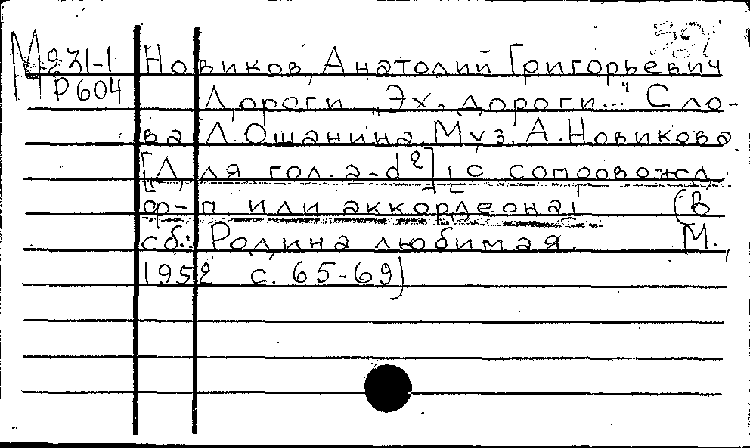 М 231-1 Новиков, Анатолий Григорьевич
Р604 Дороги „Эх, дороги..." Сло-
ва Л. Ошанина. Муз. А. Новикова
[Для гол. a-d²] [с сопровожд.
ф-п или аккордеона]
(В
сб.: Родина любимая. М.
1952 с. 65-69)